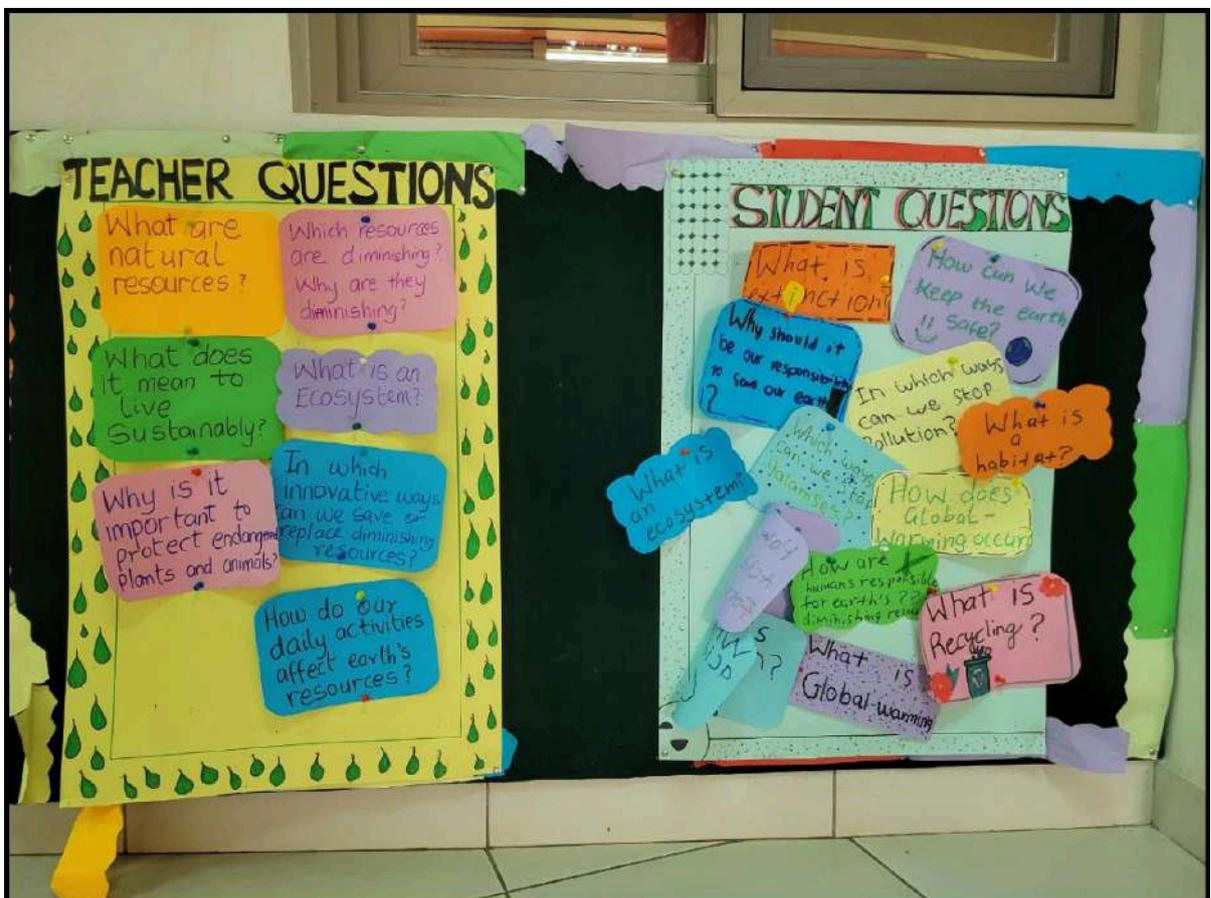 TEACHER QUESTIONS
What are
natural
resources?
Which resources
are diminishing?
Why are they
diminishing?
What does
it mean to
Live
Sustainably?
What is an
Ecosystem?
Why is it
important to
protect endangered
plants and animals?
In which
innovative ways
can we save or
replace diminishing
resources?
How do our
daily activities
affect earth's
resources?
STUDENT QUESTIONS
What is
extinction?
How can we
keep the earth
safe?
Why should it
be our responsibility
to save our earth
?
In which ways
can we stop
Pollution?
What is
a
habitat?
Which ways
can we stop
What is
an
ecosystem?
How does
Global-
warming occur
How are
humans responsible
for earth's ??
diminishing
What is
Recycling?
What is
Global-warming